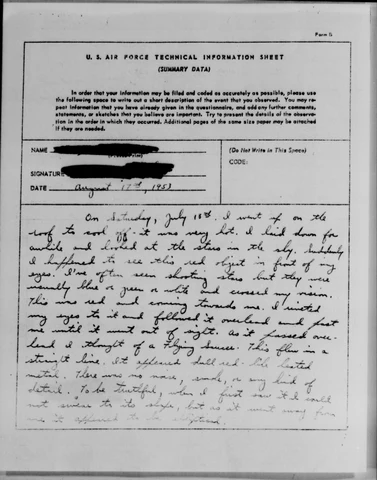 Form G
U. S. AIR FORCE TECHNICAL INFORMATION SHEET
(SUMMARY DATA)
In order that your information may be filed and coded as accurately as possible, please use
the following space to write out a short description of the event that you observed. You may re-
peat information that you have already given in the questionnaire, and add any further comments,
statements, or sketches that you believe are important. Try to present the details of the observa-
tion in the order in which they occurred. Additional pages of the same size paper may be attached
if they are needed.
NAME
SIGNATURE
DATE August 17th, 1953
(Do Not Write in This Space)
CODE:
On Saturday, July 18th. I went up on the
roof to cool off - it was very hot. I laid down for
awhile and looked at the stars in the sky. Suddenly
I happened to see this red object in front of my
eyes. I've often seen shooting stars but they were
usually blue or green or white and crossed my vision.
This was red and coming towards me. I
my eyes to it and followed it overhead and past
me until it went out of sight. As it passed over-
head I thought of a Flying Saucer. This flew in a
straight line. It appeared dull red - like heated
metal. There was no noise, smoke, or any kind of
detail. To be truthful, when I first saw it I could
not swear to its shape, but as it went away from
me it appeared to be elliptical.